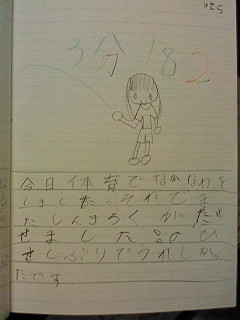 3分182
今日体育でながなわを
しました。それでま
たしんきろく だ
せました ひ
さしぶりでうれしかっ
たです